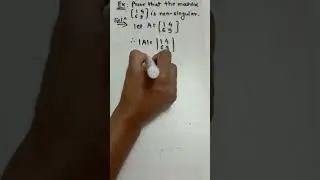 Ex: Prove that the matrix
[1 4
6 9] is non-singular.
Solⁿ
→ let A = [1 4
6 9]
∴ |A| = |1 4
6 9|